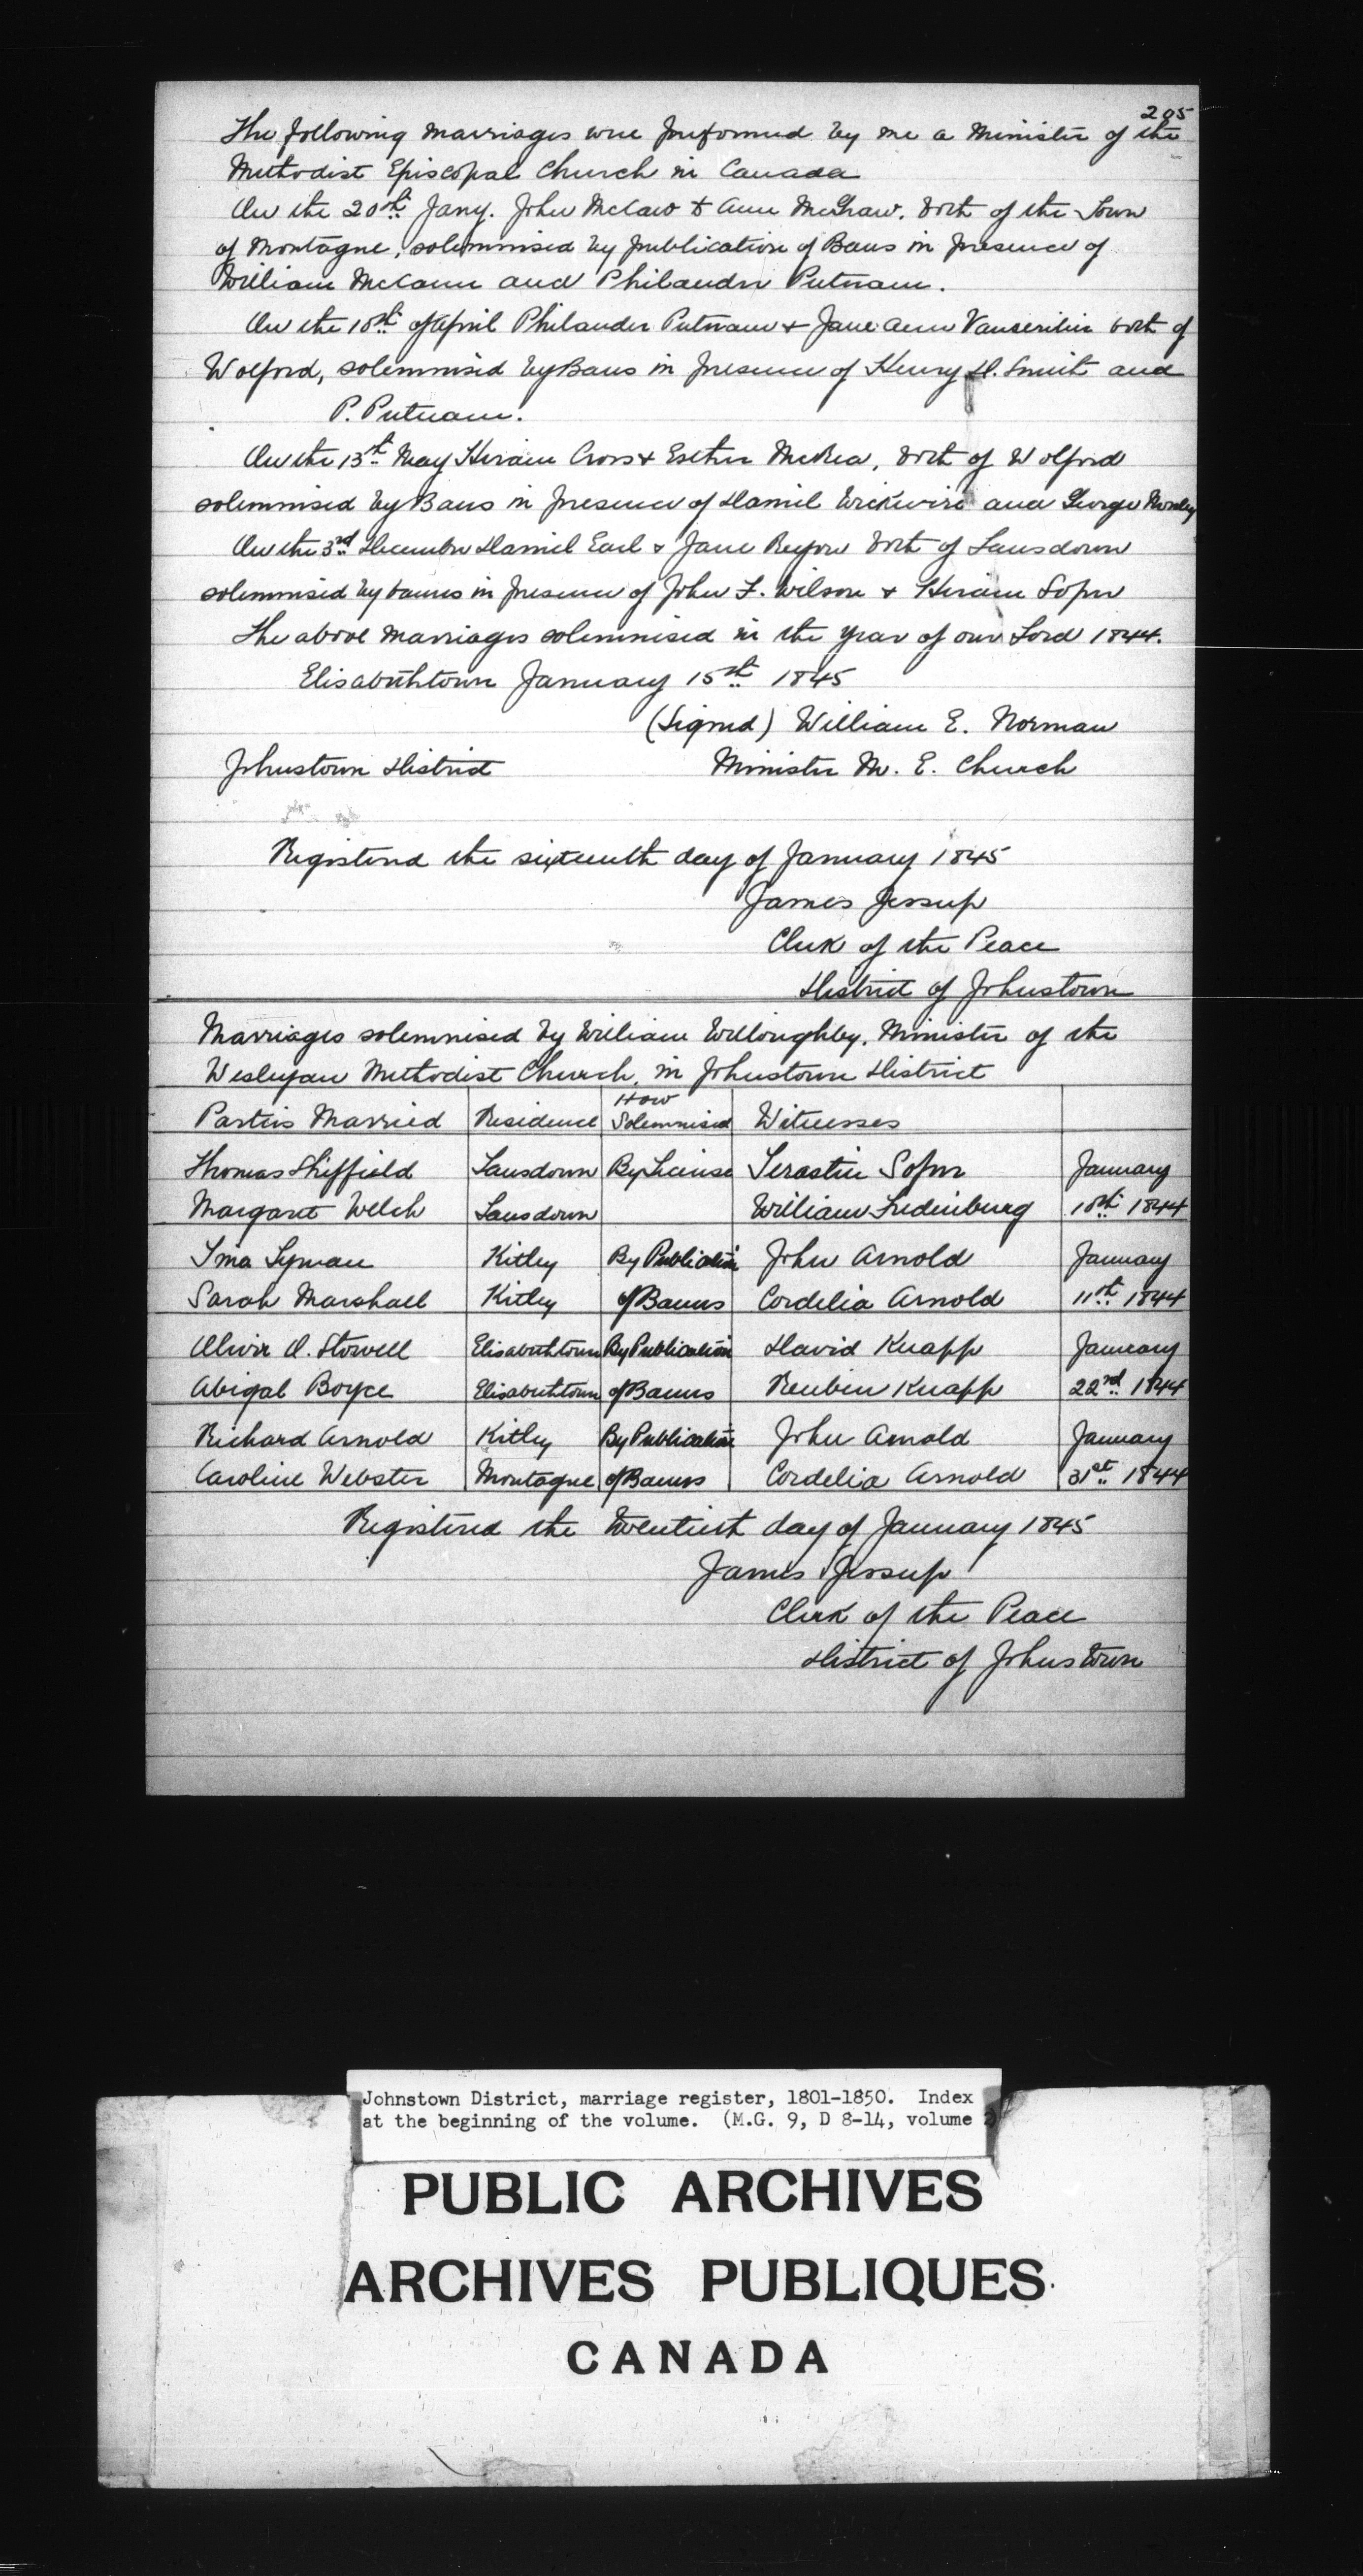 205
The following marriages were preformed by me a minister of the
Methodist Episcopal Church in Canada
On the 20th Jany. John McCaw & Ann McGraw, both of the Town
of Montague, solemnised by publication of Bans in presence of
William McCann and Philander Putnam.
On the 10th of April Philander Putnam & Jane Ann both of
Wolford, solemnised by Bans in presence of Henry D. Smith and
P. Putnam.
On the 13th May Hiram Cross & Esther McRea, both of Wolford
solemnised by Bans in presence of Daniel Wickwire and George
On the 3rd December Daniel Earl & Jane both of Lansdown
solemnised by banns in presence of John F. Wilson & Hiram Soper
The above marriages solemnised in the year of our Lord 1844.
Elisabethtown January 15th 1845
(Signed) William E. Norman
Johnstown District Minister M. E. Church
Registered the sixteenth day of January 1845
James Jessup
Clerk of the Peace
District of Johnstown
Marriages solemnised by William Willoughby, Minister of the
Wesleyan Methodist Church, in Johnstown District
Parties Married Residence How Solemnised Witnesses
Thomas Shiffield Lansdown By License Soper January
Margaret Welch Lansdown William Fredenburg 10th 1844
Ima Lyman Kitley By Publication John Arnold January
Sarah Marshall Kitley of Banns Cordelia Arnold 11th 1844
Oliver O. Stowell Elisabethtown By Publication David Knapp January
Abigal Boyce Elisabethtown of Banns Reuben Knapp 22nd 1844
Richard Arnold Kitley By Publication John Arnold January
Caroline Webster Montague of Banns Cordelia Arnold 31st 1844
Registered the twentieth day of January 1845
James Jessup
Clerk of the Peace
District of Johnstown
Johnstown District, marriage register, 1801-1850. Index
at the beginning of the volume. (M.G. 9, D 8-14, volume 2)
PUBLIC ARCHIVES
ARCHIVES PUBLIQUES
CANADA